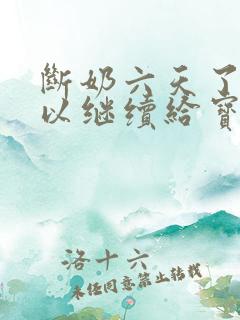 斷奶六天了
以继續給寳
洛十六
未经同意禁止转载